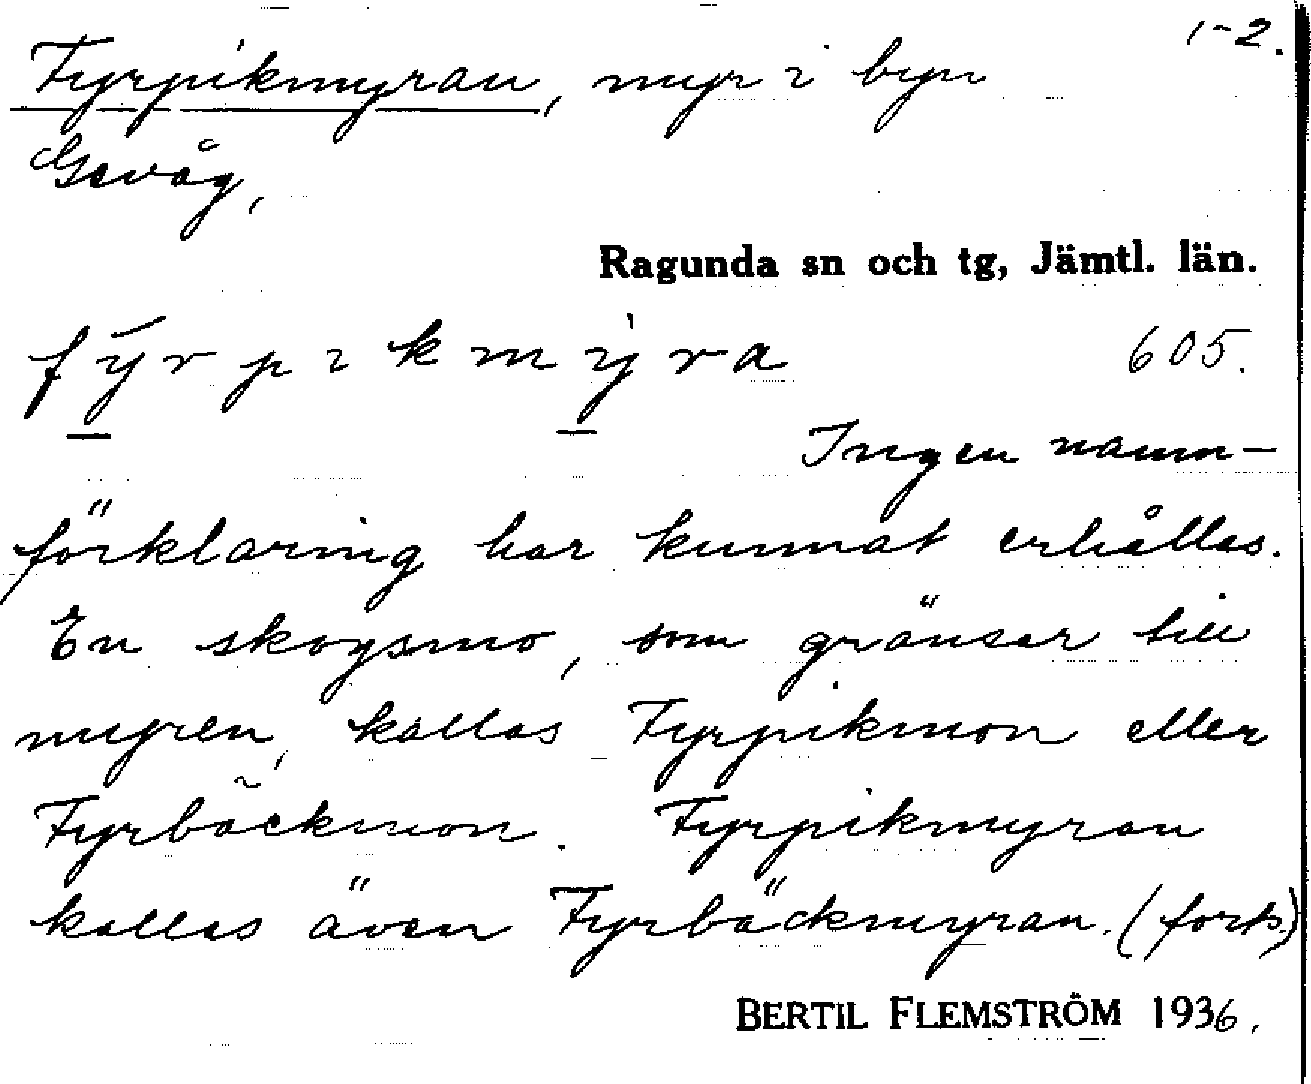 1-2.
Fyrpikmyran, myr i byn
Gevåg,
Ragunda sn och tg, Jämtl. län.
fyrpikmyra 605.
Ingen namn-
förklaring har kunnat erhållas.
En skogsmo, som gränsar till
myren, kallas Fyrpikmon eller
Fyrbäckmon. Fyrpikmyran
kallas även Fyrbäckmyran. (forts.)
BERTIL FLEMSTRÖM 1936.